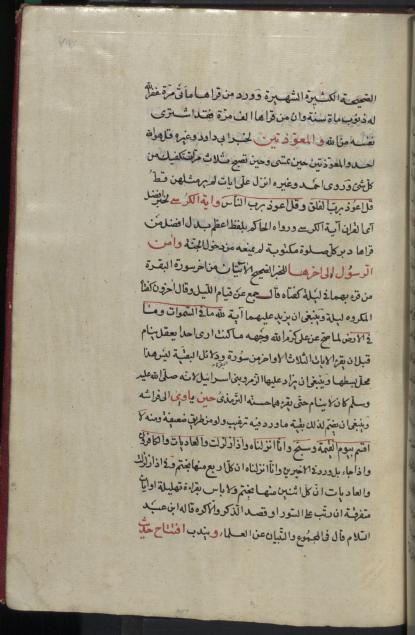 الصحيحة الكثيرة الشهيرة وورد من قراها مأتى مرة غفر الله
له ذنوب ماة سنة وان من قراها الف مرة فقد اشترى
نفسه من الله والمعوذتين لخبر ابى داود وغيره قل هو الله
احد والمعوذتين حين تمسى وحين تصبح ثلاث مرات تكفيك من
كل شئ وروى احمد وغيره انزل على ايات لم ير مثلهن قط
قل اعوذ برب الفلق وقل اعوذ برب الناس واية الكرسى لخبر افضل
آى القران آية الكرسى ورواه الحاكم بلفظ اعظم بدل افضل من
قراها دبر كل صلوة مكتوبة لم يمنعه من دخول الجنة وامن
الرسول الى اخرها للخبر الصحيح الآيتان من اخر سورة البقرة
من قرء بهما فى ليلة كفتاه قال جمع عن قيام الليل وقال اخرون كفتا
المكروه ليلة وينبغى ان يزيد عليهما آية لله ما فى السموات وما
فى الارض لما صح عن على كرم الله وجهه ما كنت ارى احدا يعقل ينام
قبل ان يقرء الايات الثلاث الاواخر من سورة البقرة ودلائل البقية ليس هذا
محل بسطها وينبغى ان يزاد عليها الزمر وبنى اسرائيل لانه صلى الله عليه
وسلم كان لا ينام حتى يقرءهما حسنه الترمذى حين ياوى الى فراشه
وينبغى ان يضم لذلك بقية ما ورد فيه ترغيب ولو من طريق ضعيفة ومنه لا
اقسم بيوم القيمة وسبح وانا انزلناه واذا زلزلت والعاديات والكافرون
واذا جاء بل ورد فى الاخيرين وانا انزلناه ان كلا ربع منها يختم وفى اذا زلزلت
والعاديات ان كل اثنين منها يختم ولا باس بقراءة تهليلة او ايات
متفرقة ان رتب على السور او قصد الذكر والا كره قاله ابن عبد
السلام قال فى المجموع والتبيان عن العلماء ويندب افتتاح حديث